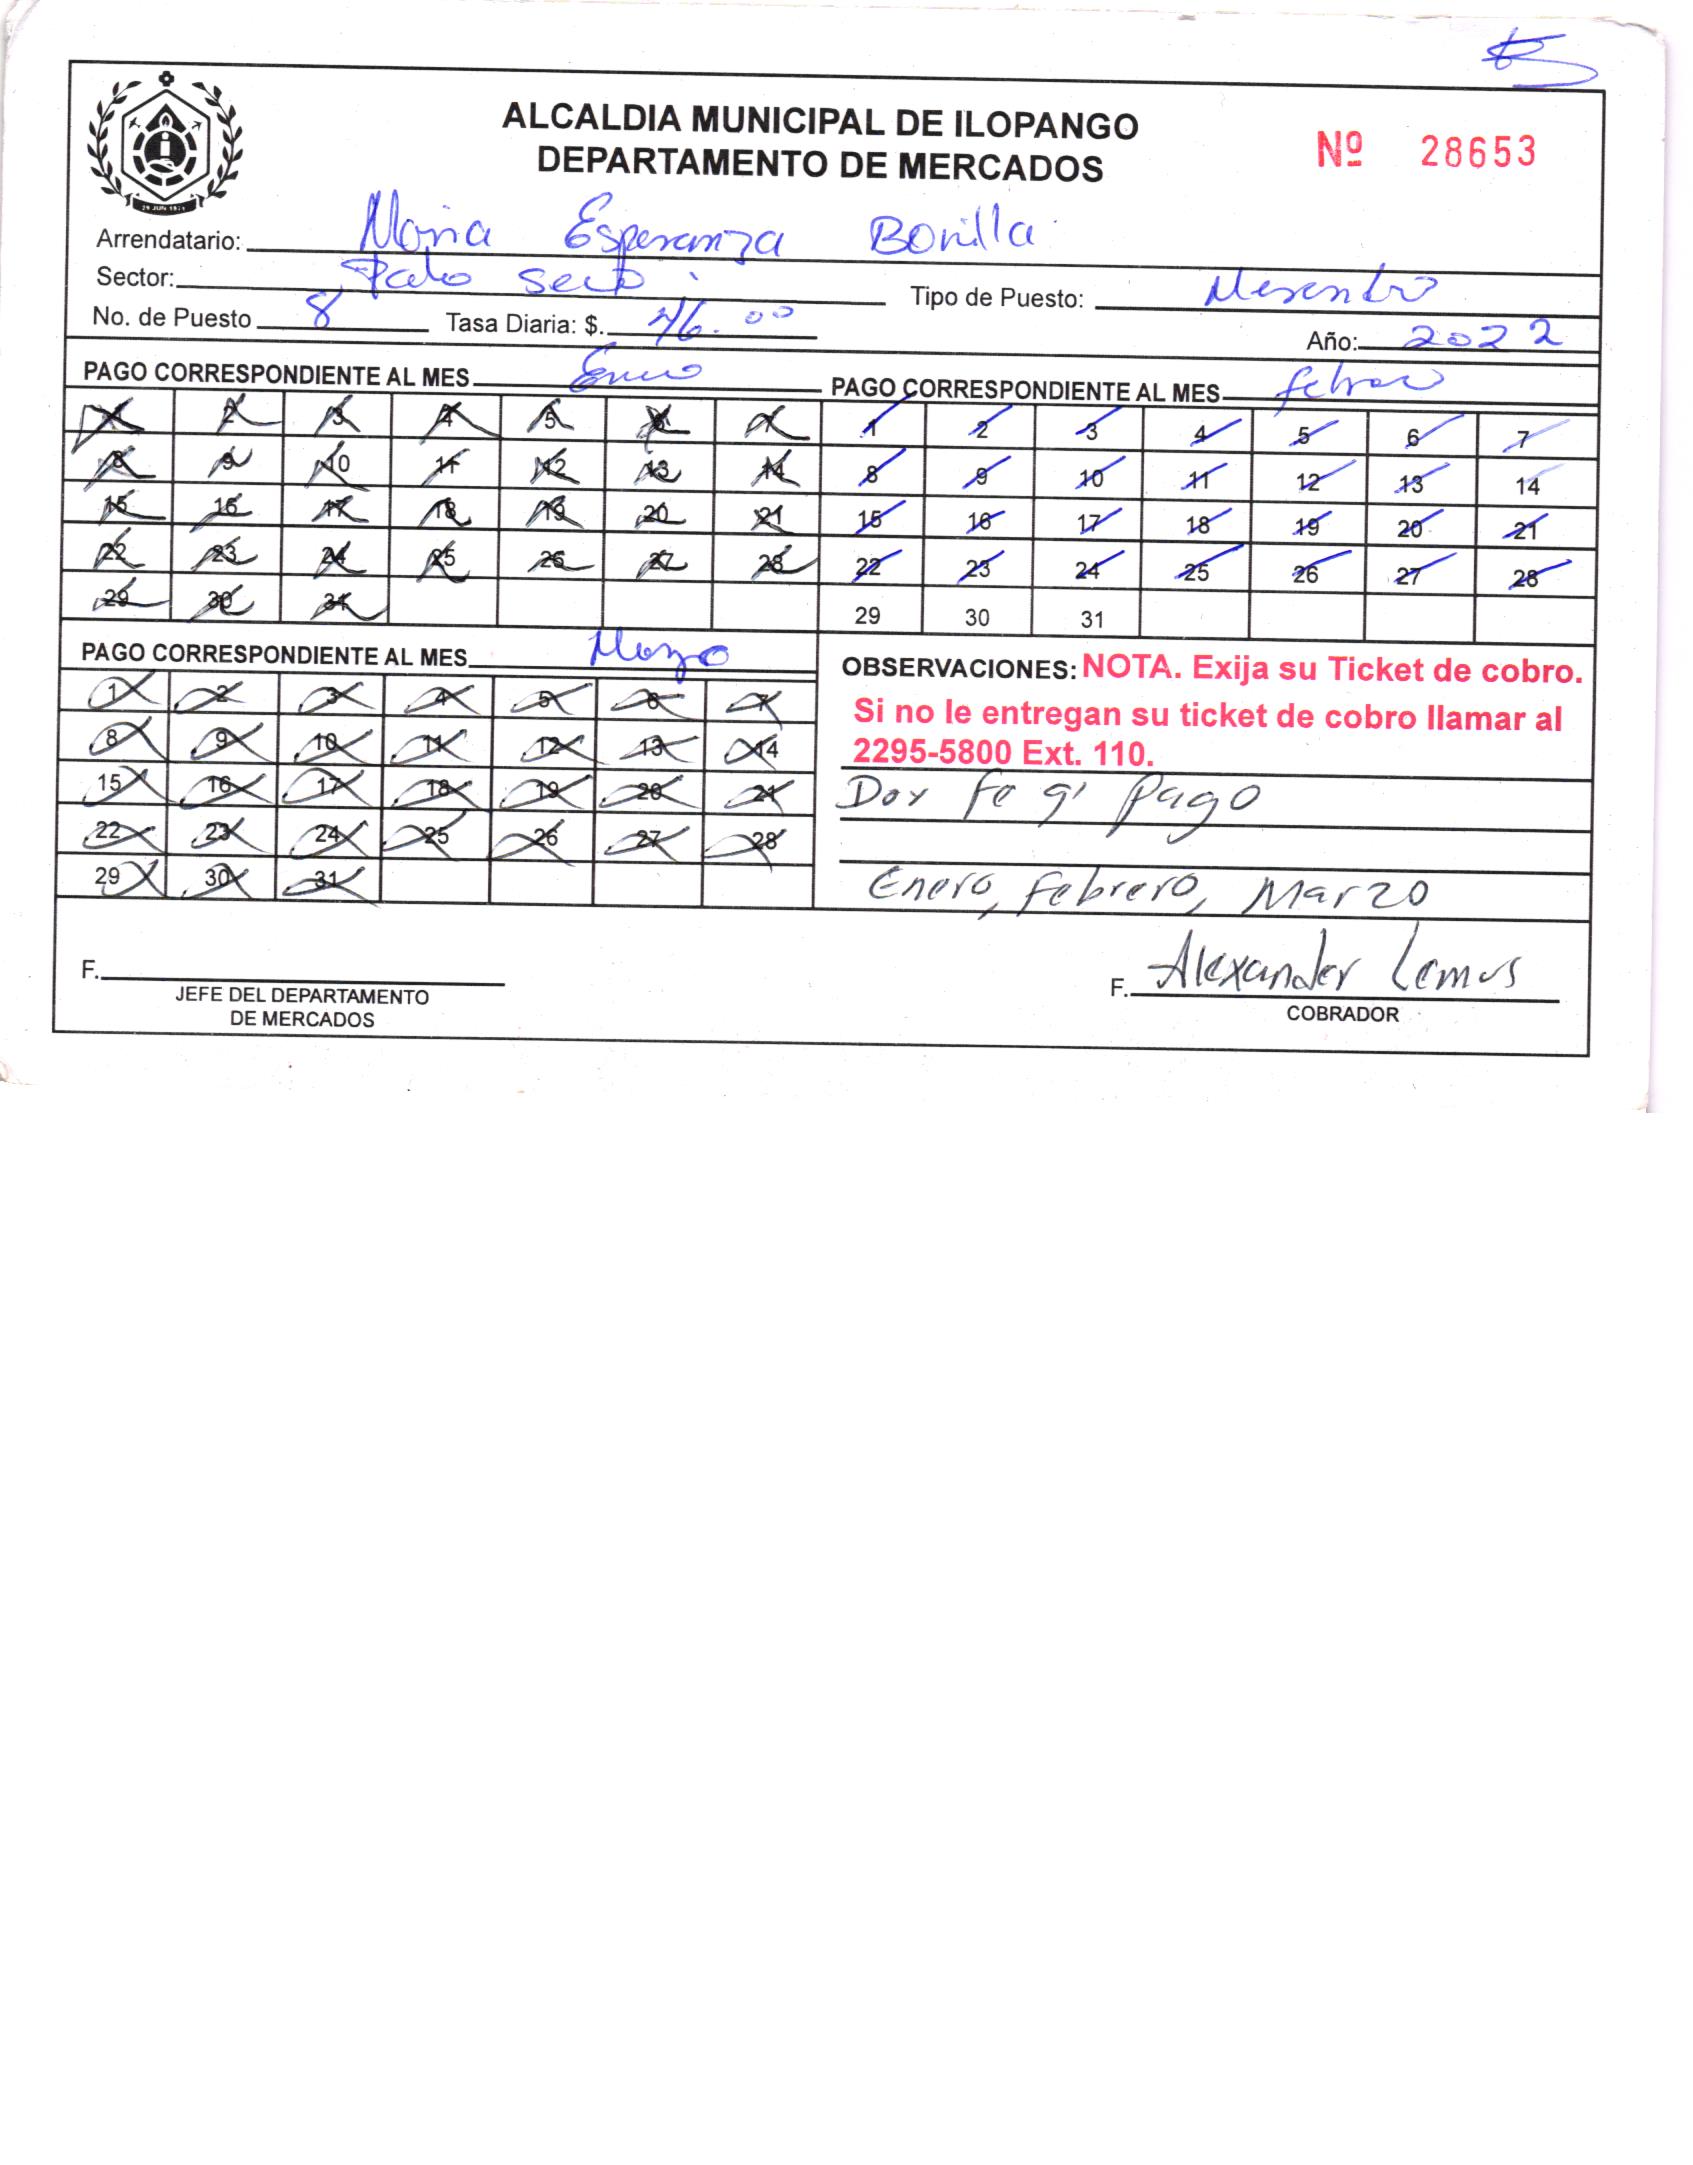 ALCALDIA MUNICIPAL DE ILOPANGO
DEPARTAMENTO DE MERCADOS
Nº 28653
29 JUN 1971
Arrendatario: Maria Esperanza Bonilla
Sector: Patio seco Tipo de Puesto:
No. de Puesto 8 Tasa Diaria: $. Año: 2022
PAGO CORRESPONDIENTE AL MES Enero
1 2 3 4 5 6 7
8 9 10 11 12 13 14
15 16 17 18 19 20 21
22 23 24 25 26 27 28
29 30 31
PAGO CORRESPONDIENTE AL MES febrero
1 2 3 4 5 6 7
8 9 10 11 12 13 14
15 16 17 18 19 20 21
22 23 24 25 26 27 28
29 30 31
PAGO CORRESPONDIENTE AL MES Marzo
1 2 3 4 5 6 7
8 9 10 11 12 13 14
15 16 17 18 19 20 21
22 23 24 25 26 27 28
29 30 31
OBSERVACIONES: NOTA. Exija su Ticket de cobro.
Si no le entregan su ticket de cobro llamar al
2295-5800 Ext. 110.
Doy fe q' Pago
Enero, febrero, Marzo
F.
JEFE DEL DEPARTAMENTO
DE MERCADOS
F. Alexander Lemus
COBRADOR